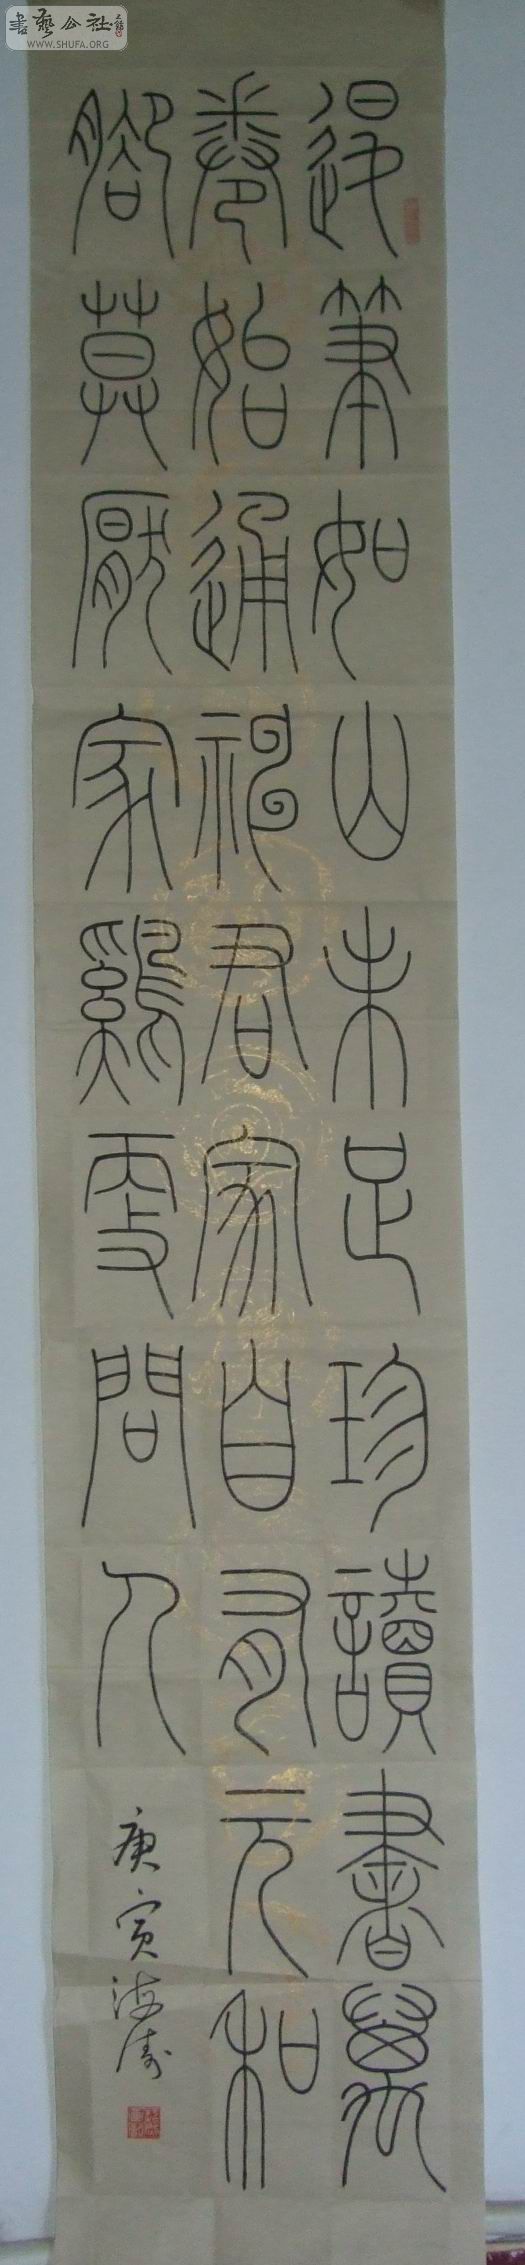 退筆如山未足珍讀書萬
卷始通神君家自有元和
腳莫厭家雞更問人
庚寅海濤
書藝公社
WWW.SHUFA.ORG